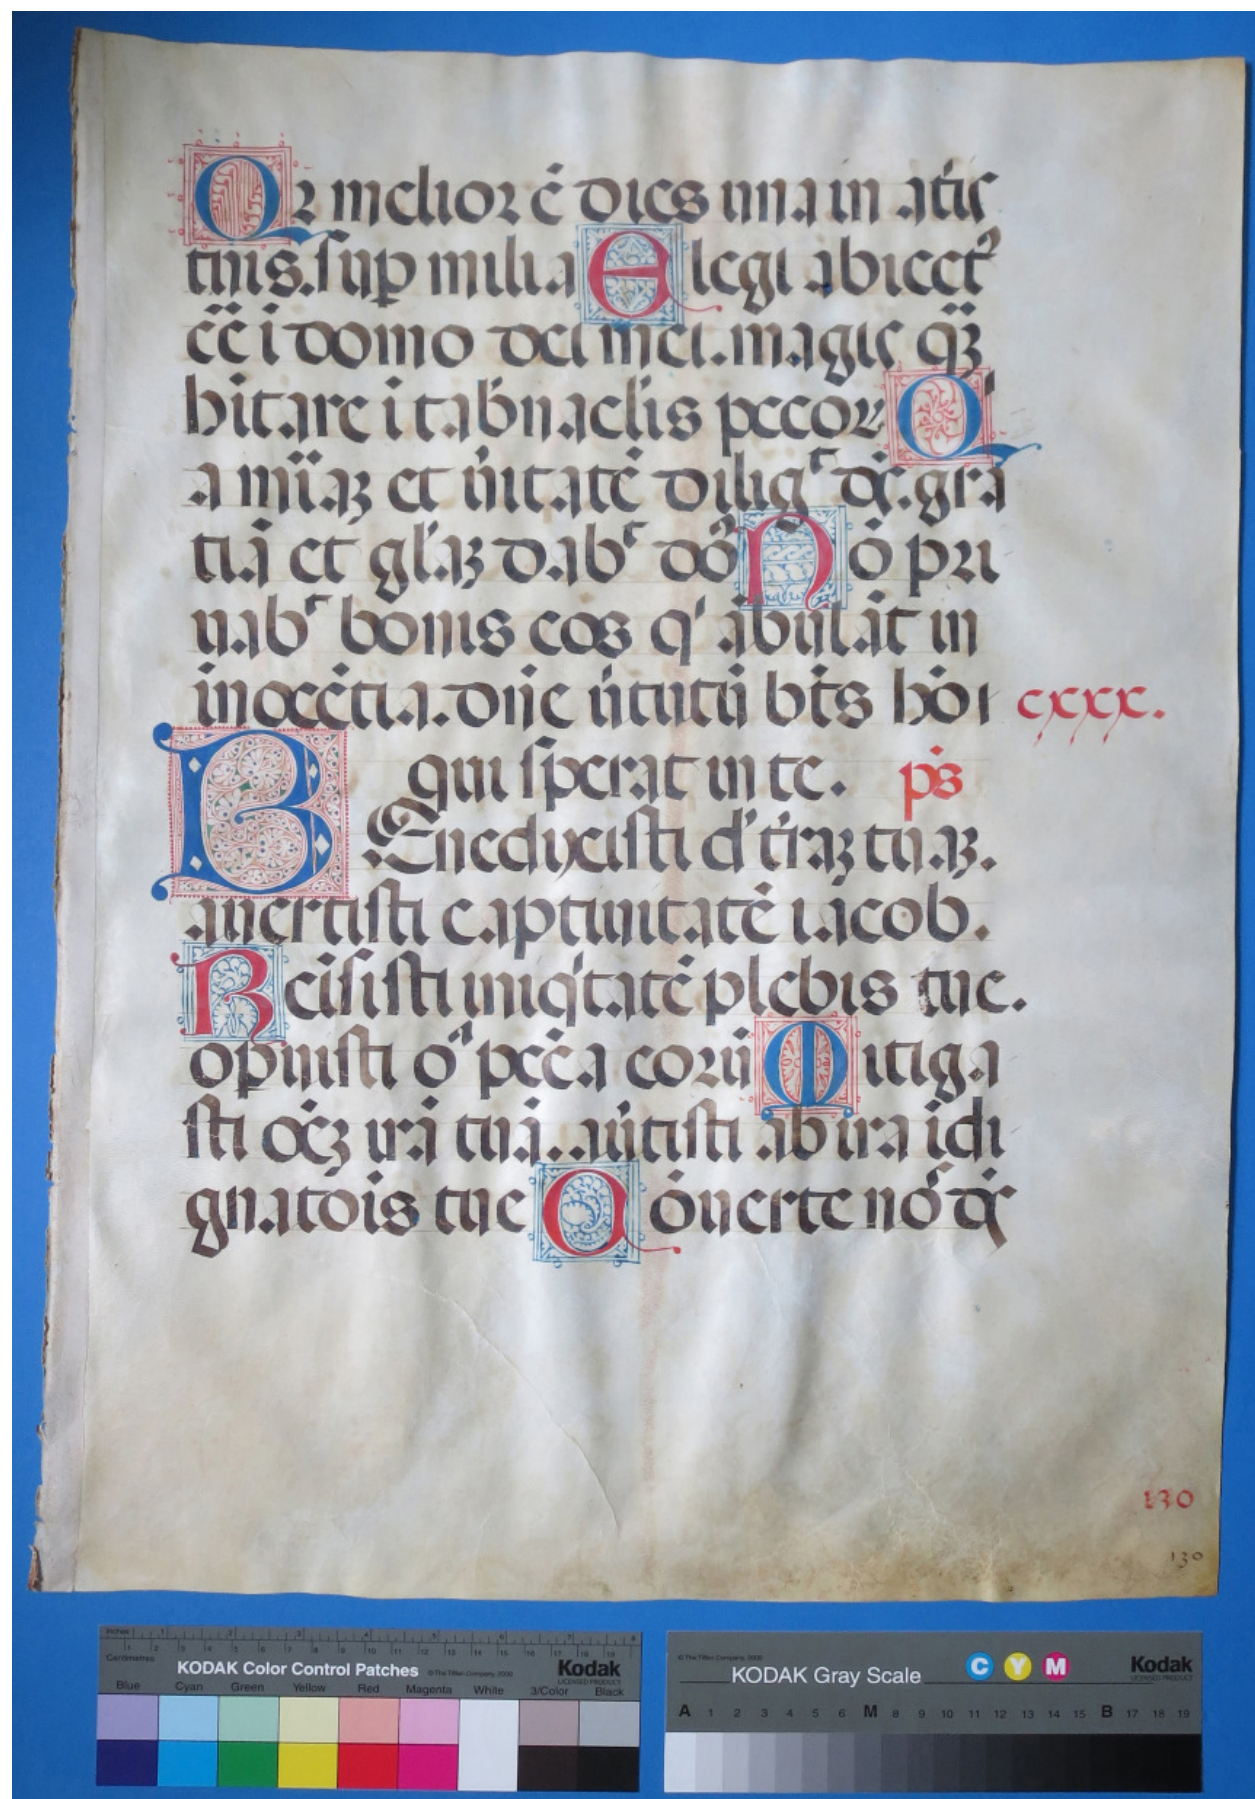 Qr melior ē dies una in atriis
tuis. sup milia Elegi abiect9
eē i domo dei mei. magis qȝ
bitare i tabnaclis peccoꝝ Q
a miaȝ et uitatē dilig dȩ. gra
tiā et gl'aȝ dab dō Nō pri
uab bonis eos q' ābulāt in
inocētia. dn̄e uitutū bt̄s hō cxxx.
qui sperat in te. ps̄
BEnedixisti d' t'raȝ tuaȝ.
auertisti captiuitatē iacob.
Remisisti iniq'tatē plebis tue.
opuisti oa pcc̄a eorū Mitiga
sti oēȝ irā tuā. au'tisti ab ira īdi
gnatōis tue Cōuerte nos ds̄
130
130
Inches
Centimetres
KODAK Color Control Patches © The Tiffen Company, 2000 Kodak
LICENSED PRODUCT
Blue Cyan Green Yellow Red Magenta White 3/Color Black
© The Tiffen Company, 2000
KODAK Gray Scale C Y M Kodak
LICENSED PRODUCT
A 1 2 3 4 5 6 M 8 9 10 11 12 13 14 15 B 17 18 19